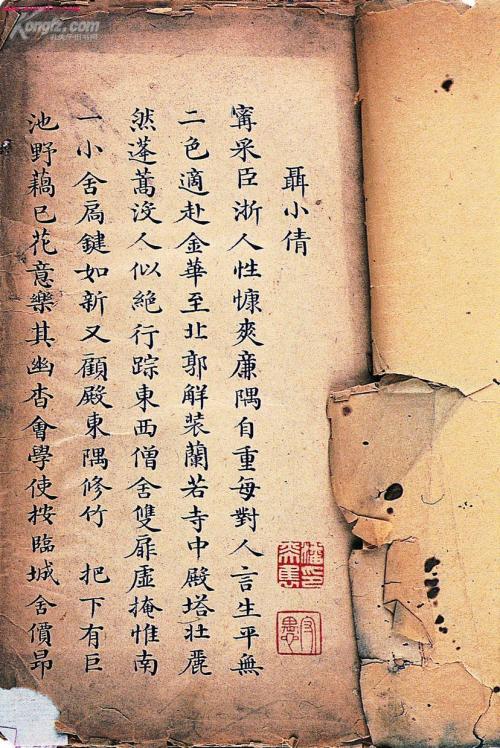 聶小倩
寗采臣浙人性慷爽廉隅自重每對人言生平無
二色適赴金華至北郭解裝蘭若寺中殿塔壯麗
然蓬蒿沒人似絕行踪東西僧舍雙扉虛掩惟南
一小舍扃鍵如新又顧殿東隅修竹 把下有巨
池野藕已花意樂其幽杳會學使按臨城舍價昂
Kongfz.com
孔夫子旧书网